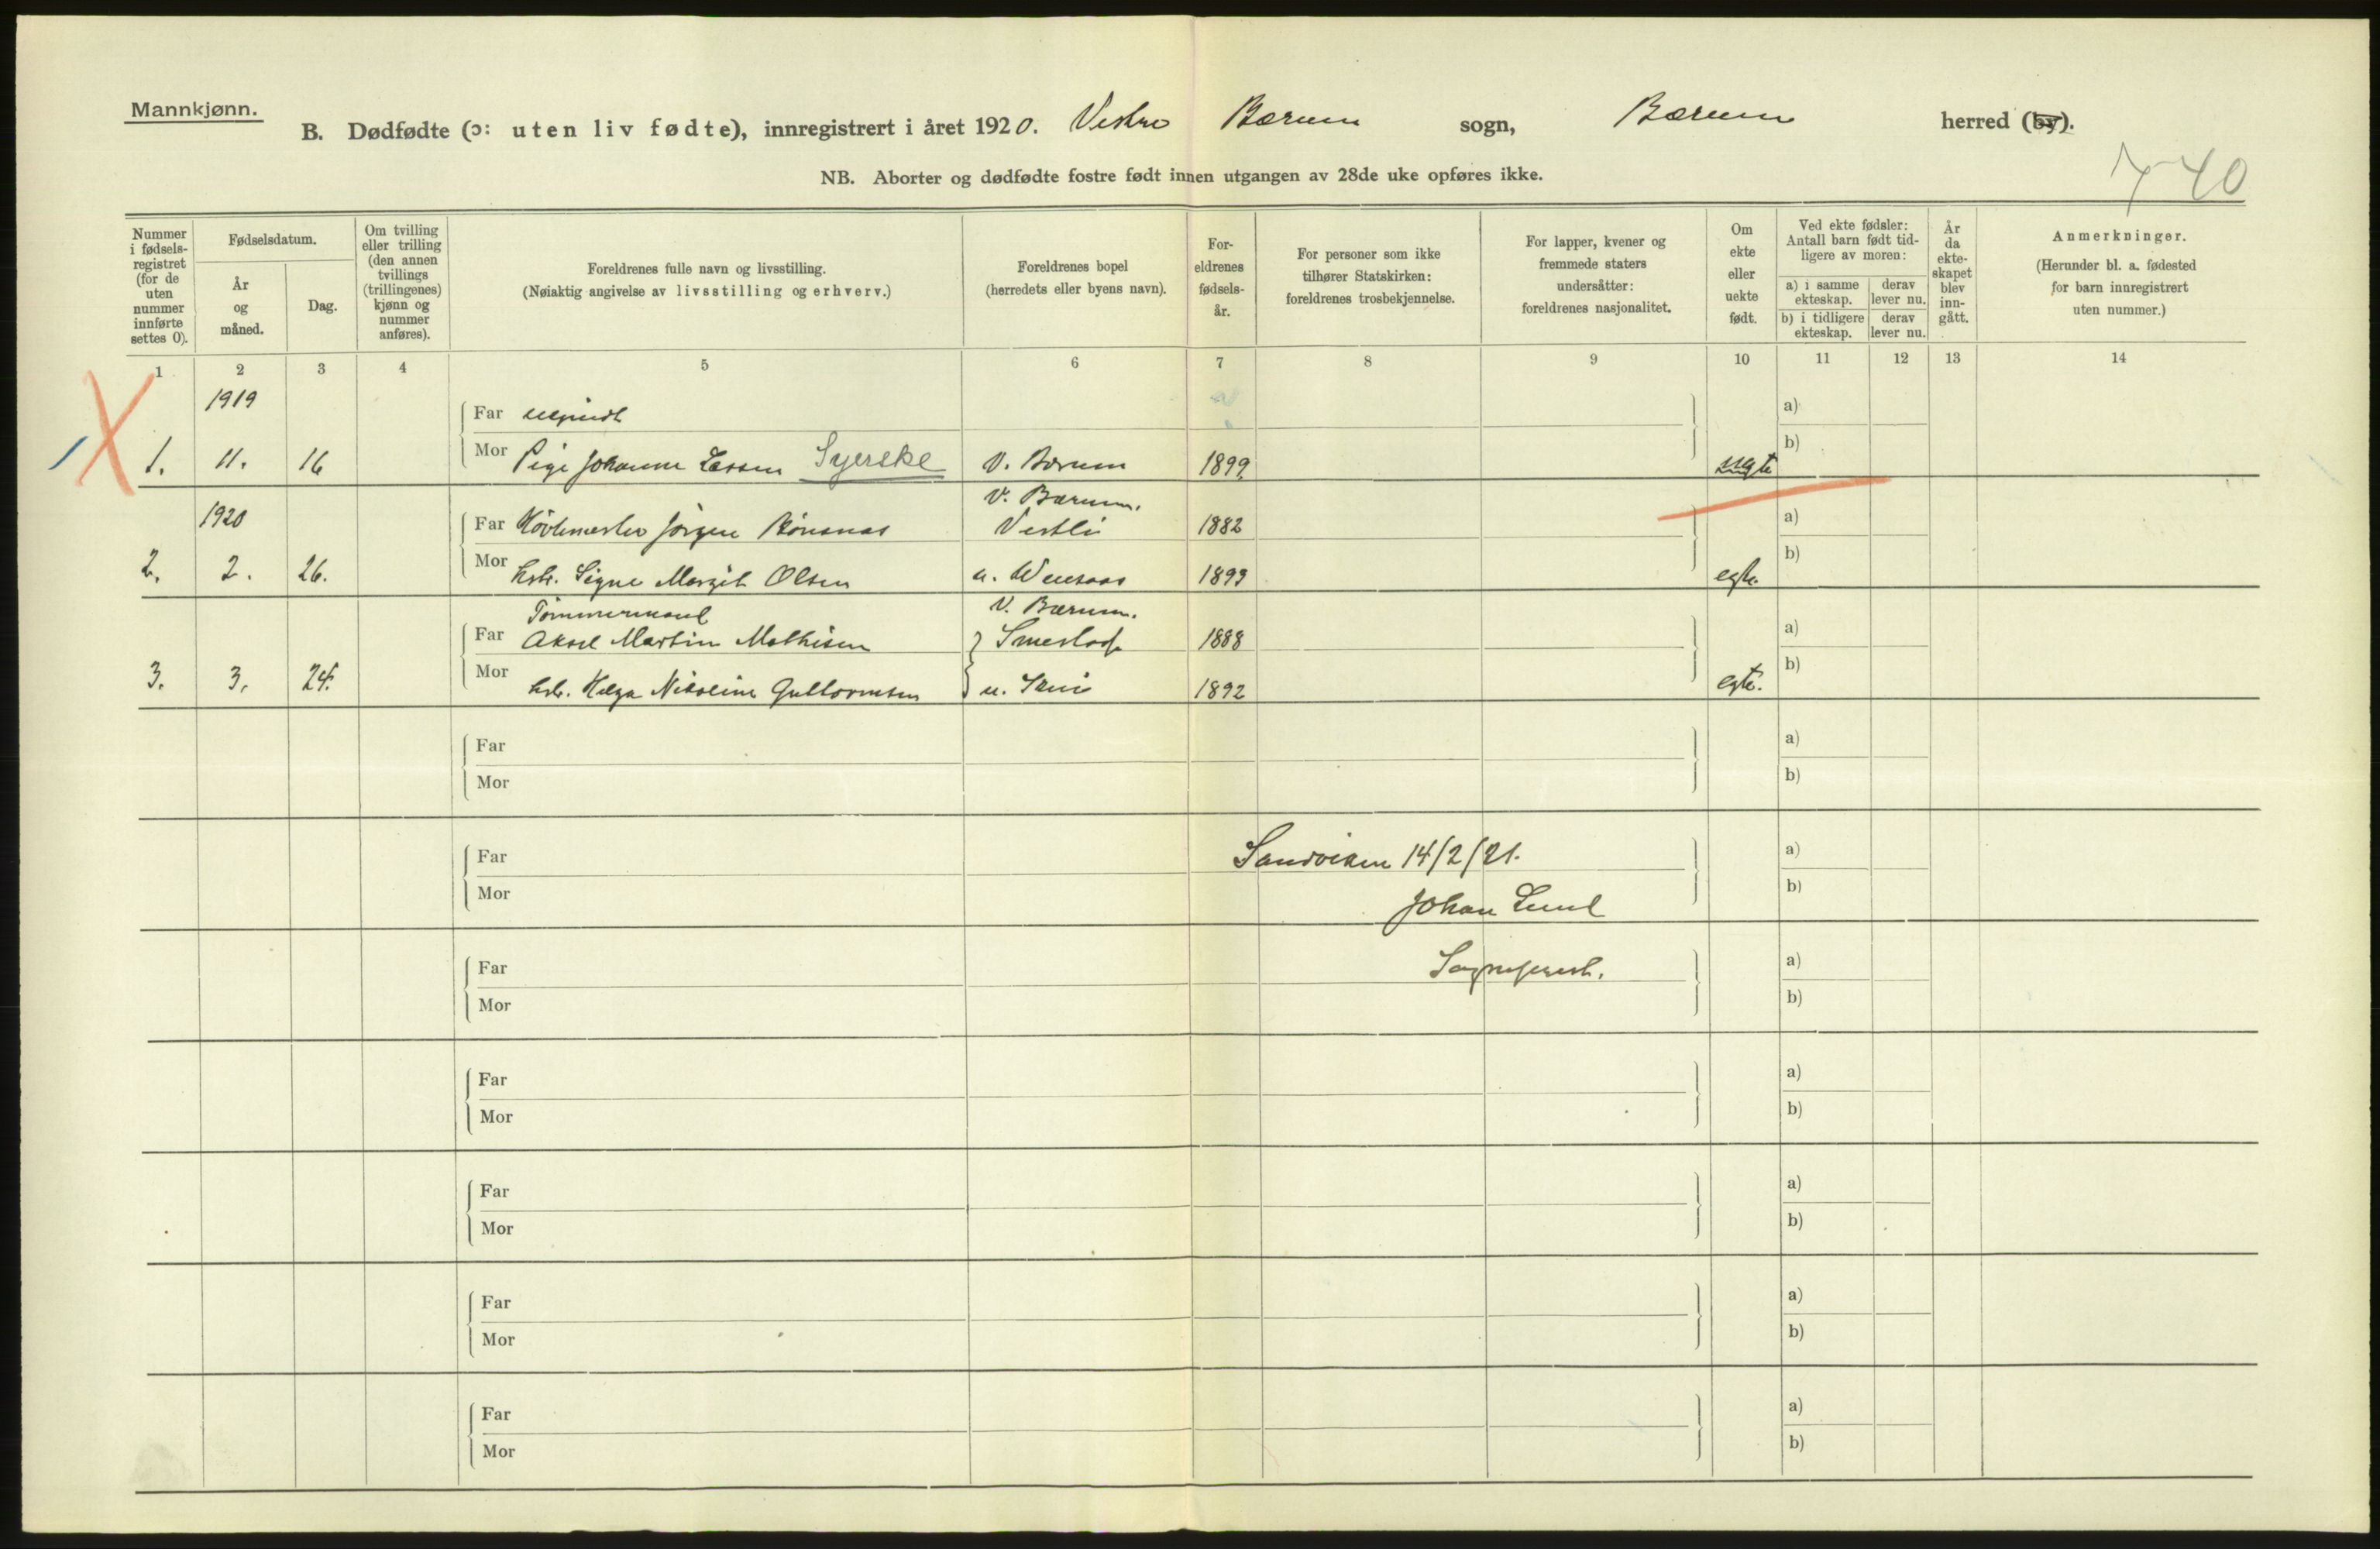 Mannkjønn.
B. Dødfødte (ɔ: uten liv fødte), innregistrert i året 1920. Vestre Bærum sogn, Bærum herred (by).
NB. Aborter og dødfødte fostre født innen utgangen av 28de uke opføres ikke.
740
Nummer i fødsels-registret (for de uten nummer innførte settes 0).
Fødselsdatum.
År og måned.
Dag.
Om tvilling eller trilling (den annen tvillings (trillingenes) kjønn og nummer anføres).
Foreldrenes fulle navn og livsstilling.
(Nøiaktig angivelse av livsstilling og erhverv.)
Foreldrenes bopel
(herredets eller byens navn).
For-eldrenes fødsels-år.
For personer som ikke tilhører Statskirken: foreldrenes trosbekjennelse.
For lapper, kvener og fremmede staters undersåtter: foreldrenes nasjonalitet.
Om ekte eller uekte født.
Ved ekte fødsler: Antall barn født tid-ligere av moren:
a) i samme ekteskap.
derav lever nu.
b) i tidligere ekteskap.
derav lever nu.
År da ekte-skapet blev inn-gått.
Anmerkninger.
(Herunder bl. a. fødested for barn innregistrert uten nummer.)
1 2 3 4 5 6 7 8 9 10 11 12 13 14
1919
Far a)
1. 11. 16 Mor Pige Johanne Larsen Syerske V. Bærum 1899 uegte b)
1920 V. Bærum.
Far Jørgen Vestli 1882 a)
2. 2. 26. Mor hstr. Signe Margit Olsen 1893 egte. b)
Tømmermand V. Bærum.
Far Aksel Martin Mathisen 1888 a)
3. 3. 24. Mor hstr. Helga Nikoline Guttormsen 1892 egte. b)
Far a)
Mor b)
Far Sandviken 14/2/21. a)
Mor Johan Lund b)
Far Sogneprest. a)
Mor b)
Far a)
Mor b)
Far a)
Mor b)
Far a)
Mor b)
Far a)
Mor b)